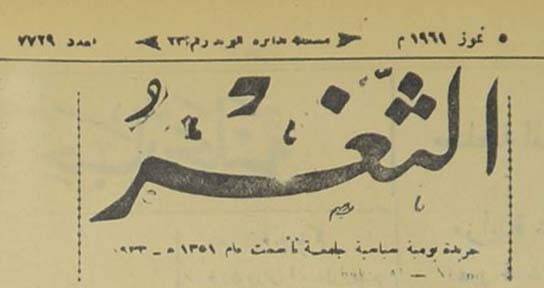 ٥ تموز ١٩٦١ م مسجلة بدائرة البريد رقم ٢٣ العدد ٧٧٢٩
الثَّغْرُ
جريدة يومية سياسية جامعة تأسست عام ١٣٥١ ه - ١٩٣٣